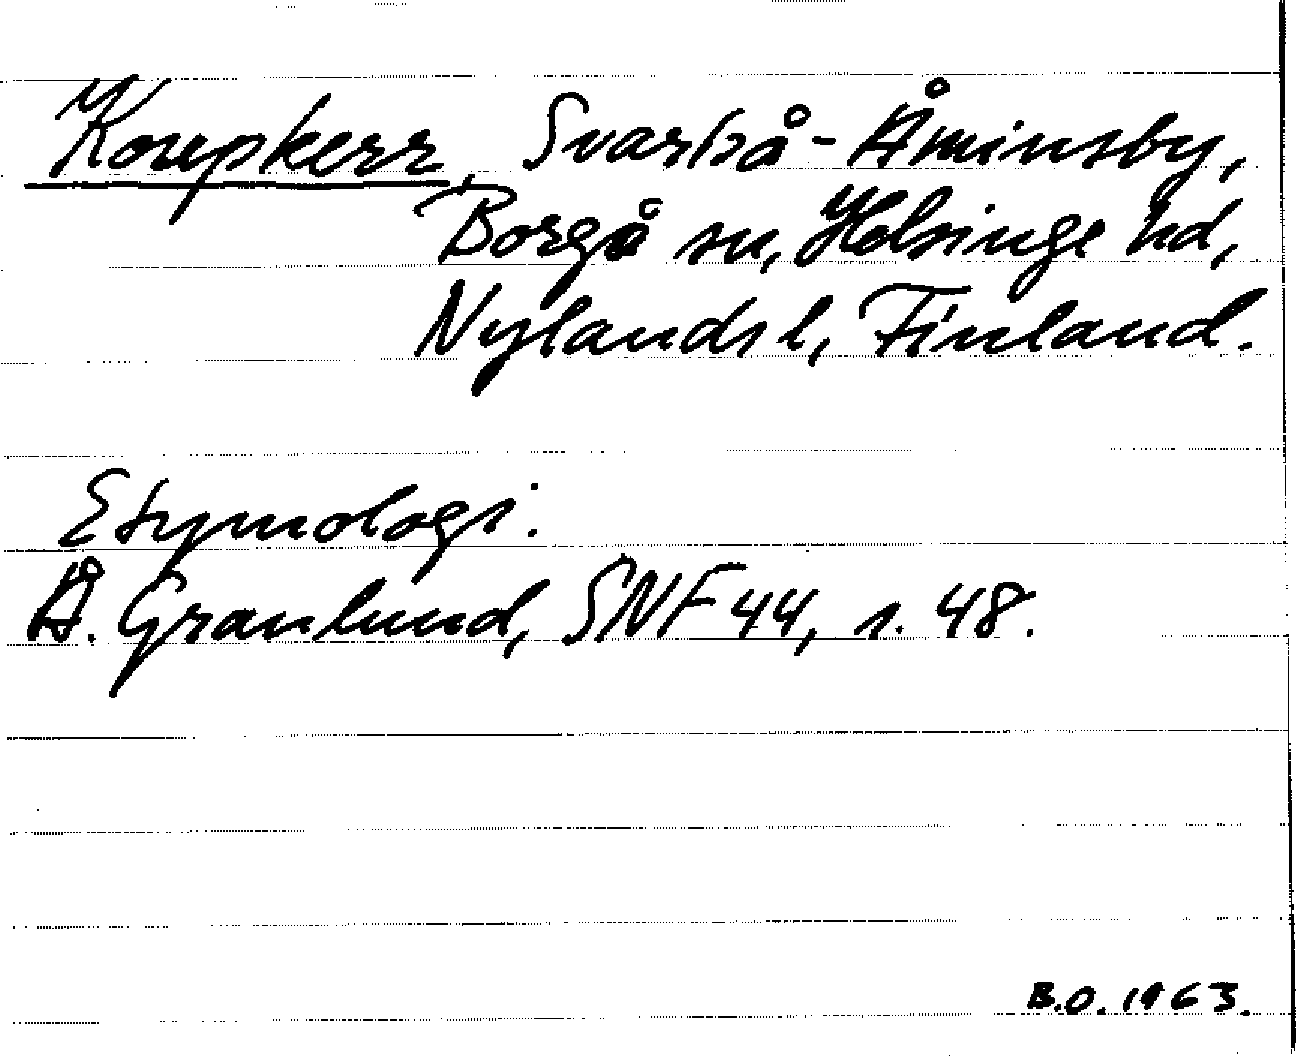 Korpkerr, Svartså-Åminsby,
Borgå sn, Helsinge hd,
Nylands l, Finland.
Etymologi:
Å. Granlund, SNF 44, s. 48.
B.O. 1963.